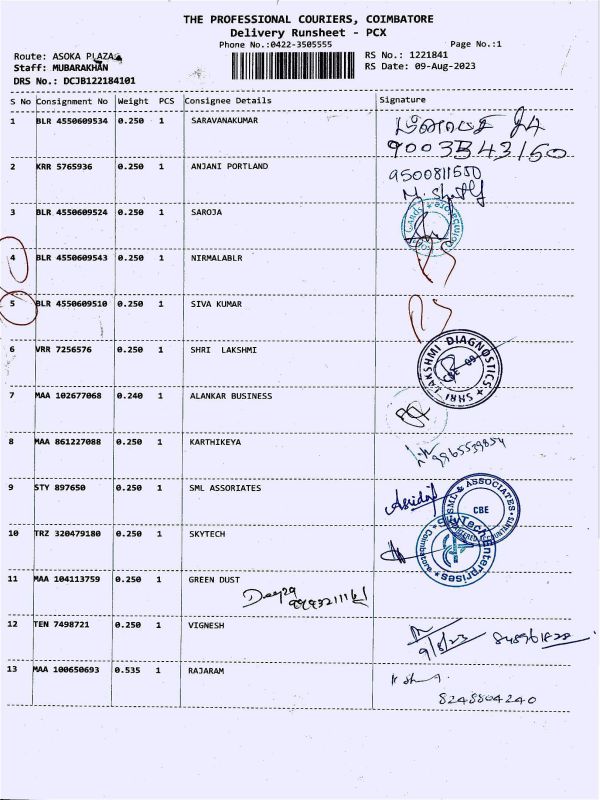 THE PROFESSIONAL COURIERS, COIMBATORE
Delivery Runsheet - PCX
Phone No.:0422-3505555 Page No.:1
Route: ASOKA PLAZA RS No.: 1221841
Staff: MUBARAKHAN RS Date: 09-Aug-2023
DRS No.: DCJB122184101
S No Consignment No Weight PCS Consignee Details Signature
1 BLR 4550609534 0.250 1 SARAVANAKUMAR
9003543150
2 KRR 5765936 0.250 1 ANJANI PORTLAND
9500811550
3 BLR 4550609524 0.250 1 SAROJA
4 BLR 4550609543 0.250 1 NIRMALABLR
5 BLR 4550609510 0.250 1 SIVA KUMAR
6 VRR 7256576 0.250 1 SHRI LAKSHMI
SHRI LAKSHMI DIAGNOSTICS
CBE
7 MAA 102677068 0.240 1 ALANKAR BUSINESS
8 MAA 861227088 0.250 1 KARTHIKEYA
9965539854
9 STY 897650 0.250 1 SML ASSORIATES
SML & ASSOCIATES
CBE
10 TRZ 320479180 0.250 1 SKYTECH
SkyTech Enterprises
Coimbatore
11 MAA 104113759 0.250 1 GREEN DUST
12 TEN 7498721 0.250 1 VIGNESH
9/8/23
13 MAA 100650693 0.535 1 RAJARAM
8248804240